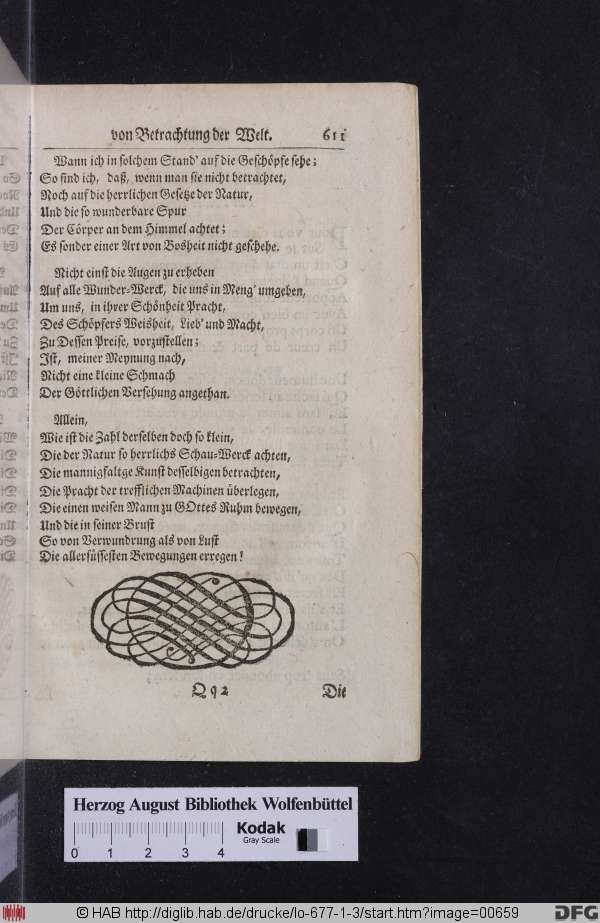 von Betrachtung der Welt. 611
Wann ich in solchem Stand' auf die Geschöpfe sehe;
So find ich, daß, wenn man sie nicht betrachtet,
Noch auf die herrlichen Gesetze der Natur,
Und die so wunderbare Spur
Der Cörper an dem Himmel achtet;
Es sonder einer Art von Bosheit nicht geschehe.
Nicht einst die Augen zu erheben
Auf alle Wunder-Werck, die uns in Meng' umgeben,
Um uns, in ihrer Schönheit Pracht,
Des Schöpfers Weisheit, Lieb' und Macht,
Zu Dessen Preise, vorzustellen;
Ist, meiner Meynung nach,
Nicht eine kleine Schmach
Der Göttlichen Versehung angethan.
Allein,
Wie ist die Zahl derselben doch so klein,
Die der Natur so herrlichs Schau-Werck achten,
Die mannigfaltge Kunst desselbigen betrachten,
Die Pracht der trefflichen Machinen überlegen,
Die einen weisen Mann zu GOttes Ruhm bewegen,
Und die in seiner Brust
So von Verwundrung als von Lust
Die allersüssesten Bewegungen erregen!
Qq 2 Die
Herzog August Bibliothek Wolfenbüttel
0 1 2 3 4
Kodak
Gray Scale
© HAB http://diglib.hab.de/drucke/lo-677-1-3/start.htm?image=00659
DFG